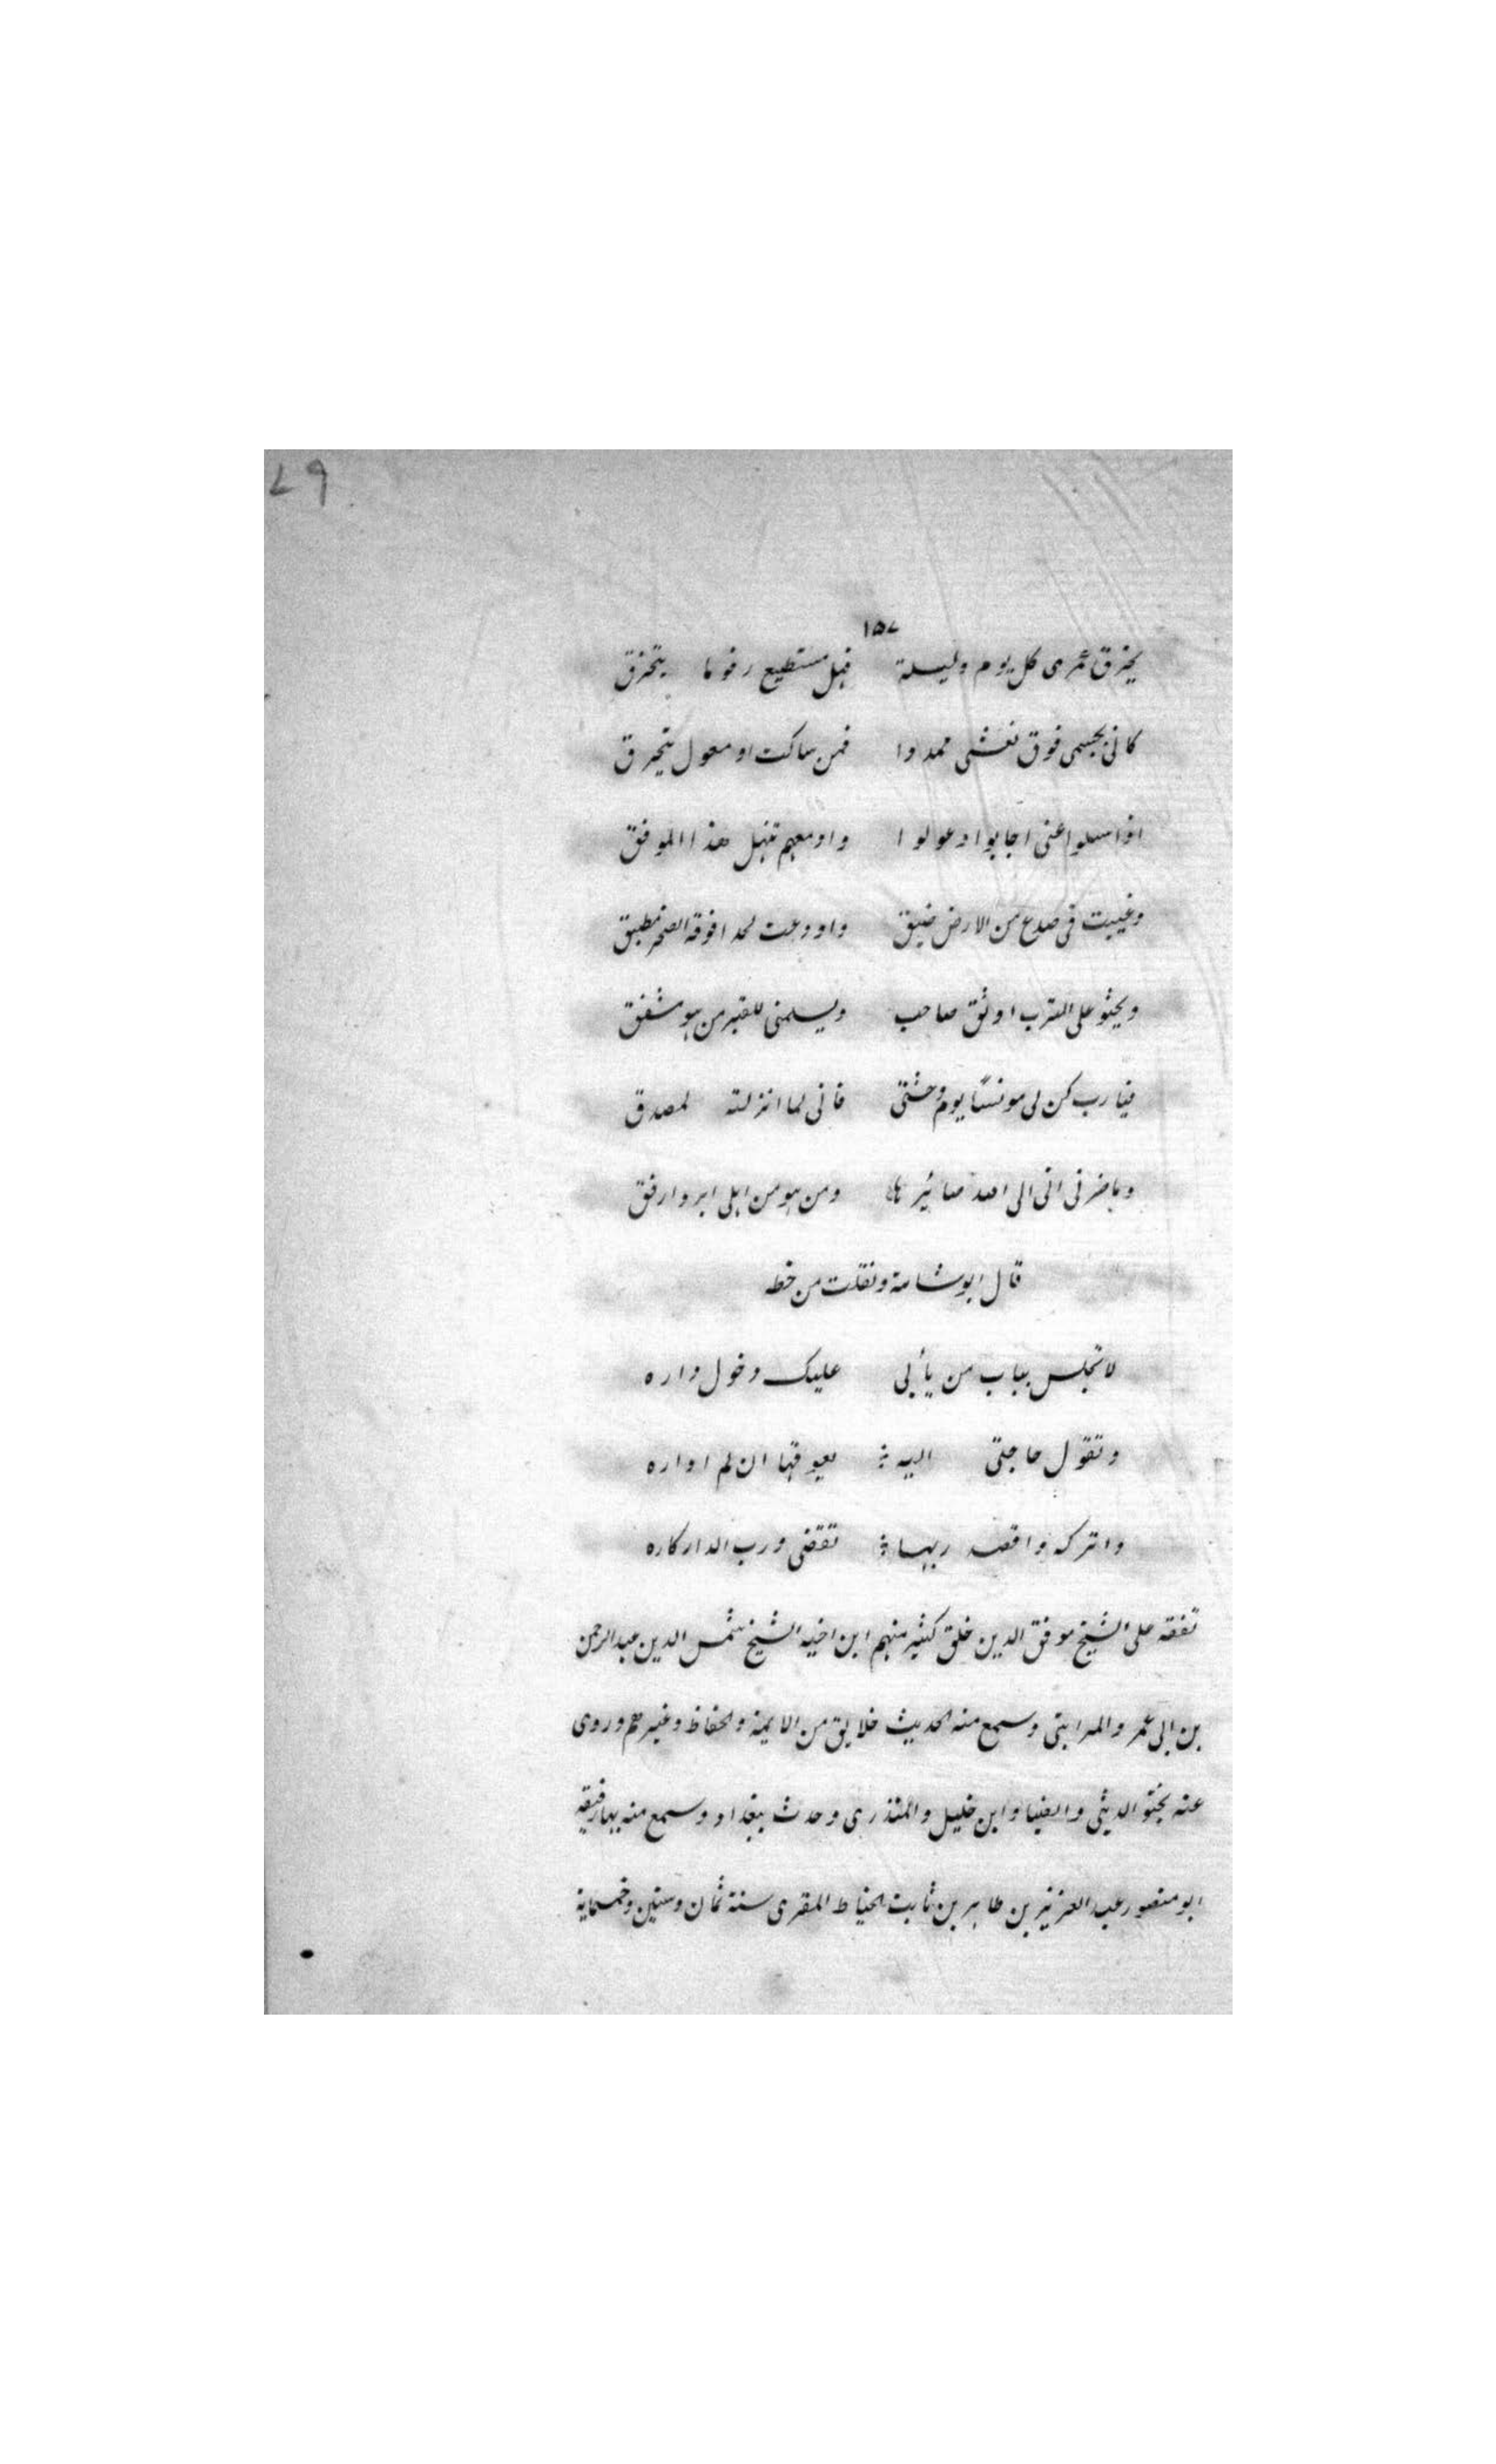 ٧٩
١٥٧
يخرق عمرى كل يوم وليلة فهل مستطيع رفوما يتخرق
كانى بجسمى فوق نعشى ممددا فمن ساكت او معول يتحرق
اذا سىلوا عنى اجابوا وعولوا وادمعهم تنهل هذا الموفق
وغيبت فى صدع من الارض ضيق واودعت لحدا فوقه الصخر مطبق
ويحثو على الترب اوثق صاحب ويسلمنى للقبر من هو مشفق
فيا رب كن لى مونسًا يوم وحشتى فانى لما انزلته لمصدق
وماضرنى انى الى الله صائر ها ومن هو من اهلى ابر وارفق
قال ابو شامة ونقلت من خطه
لا تجلس بباب من يأبى عليك دخول داره
وتقول حاجتى اليه يعوقها ان لم اداره
واتركه واقصد ربها تقضى ورب الدار كاره
تفقه على الشيخ موفق الدين خلق كثير منهم ابن اخيه الشيخ شمس الدين عبدالرحمن
بن ابى عمر والمراتبى وسمع منه الحديث خلايق من الايمة والحفاظ وغيرهم وروى
عنه الدبيثى والضيا وابن خليل والمنذرى وحدث ببغداد وسمع منه بها رفيقه
ابو منصور عبد العزيز بن طاهر بن ثابت الخياط المقرى سنة ثمان وستين وخمسماية